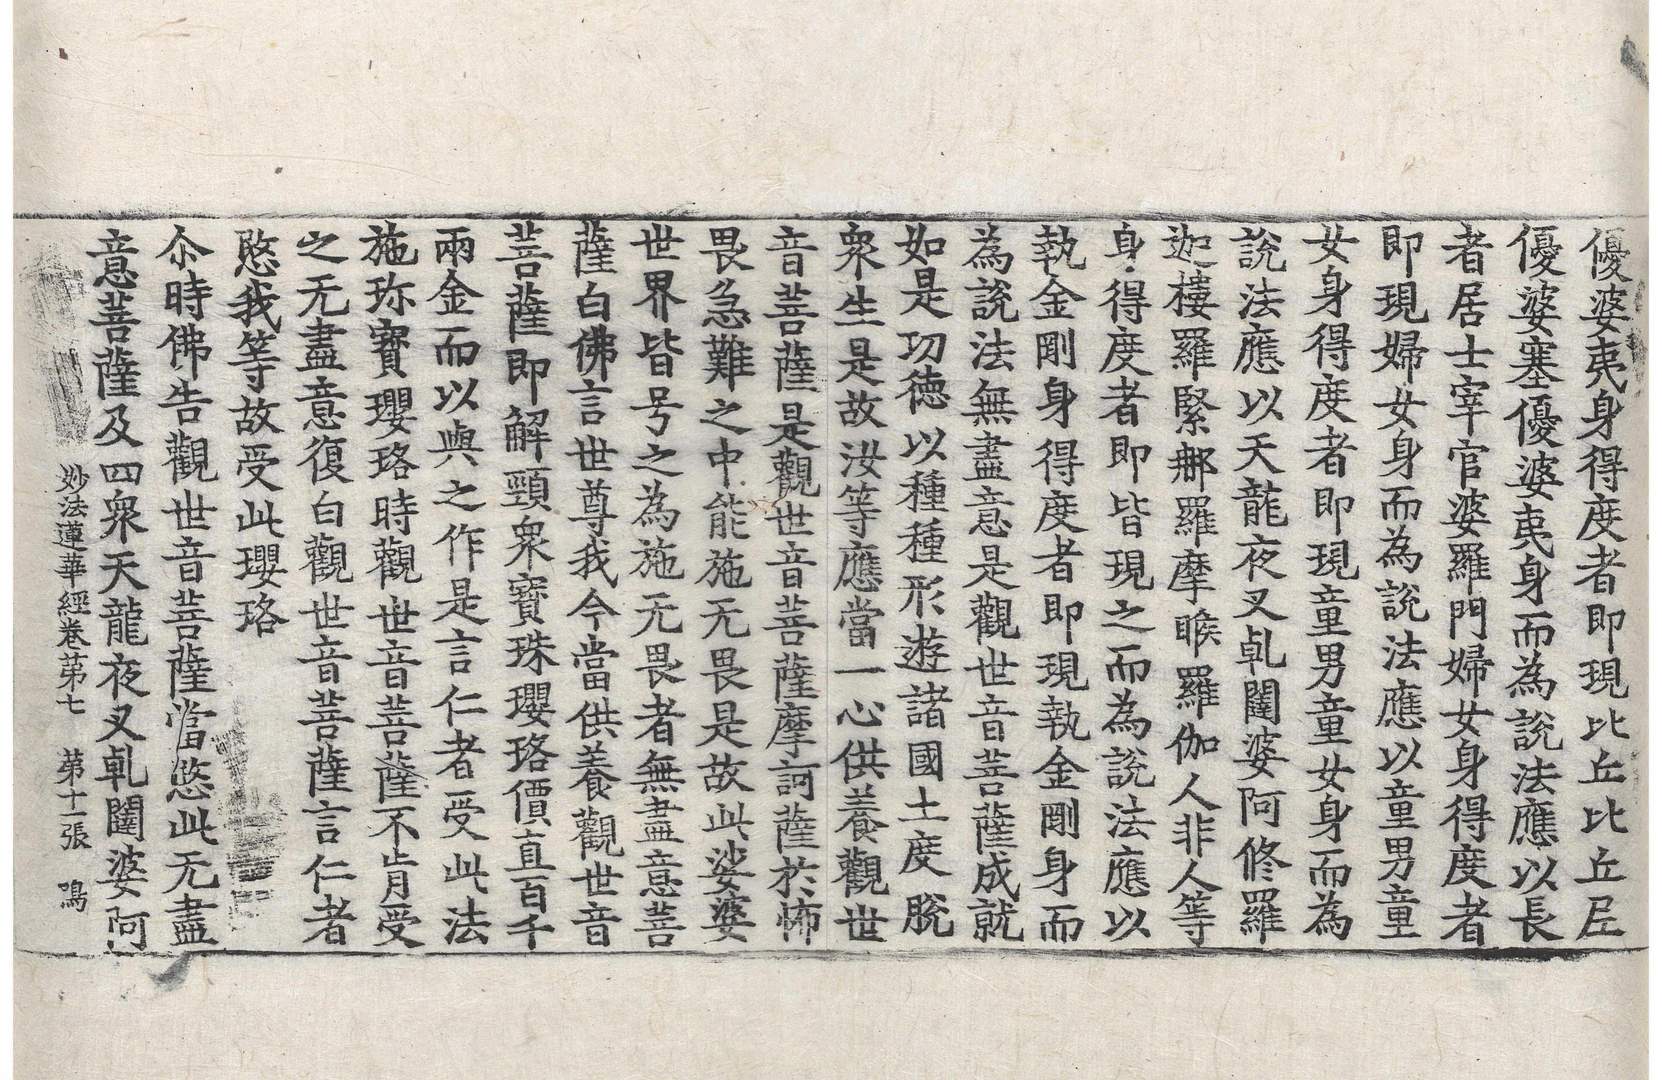 優婆夷身得度者即現比丘比丘尼
優婆塞優婆夷身而為說法應以長
者居士宰官婆羅門婦女身得度者
即現婦女身而為說法應以童男童
女身得度者即現童男童女身而為
說法應以天龍夜叉乹闥婆阿修羅
迦樓羅緊那羅摩睺羅伽人非人等
身得度者即皆現之而為說法應以
執金剛身得度者即現執金剛身而
為說法無盡意是觀世音菩薩成就
如是功德以種種形遊諸國土度脫
衆生是故汝等應當一心供養觀世
音菩薩是觀世音菩薩摩訶薩於怖
畏急難之中能施无畏是故此娑婆
世界皆号之為施无畏者無盡意菩
薩白佛言世尊我今當供養觀世音
菩薩即解頸衆寶珠瓔珞價直百千
兩金而以與之作是言仁者受此法
施珎寶瓔珞時觀世音菩薩不肯受
之无盡意復白觀世音菩薩言仁者
愍我等故受此瓔珞
尒時佛告觀世音菩薩當愍此无盡
意菩薩及四衆天龍夜叉乹闥婆阿
妙法蓮華經卷第七 第十一張